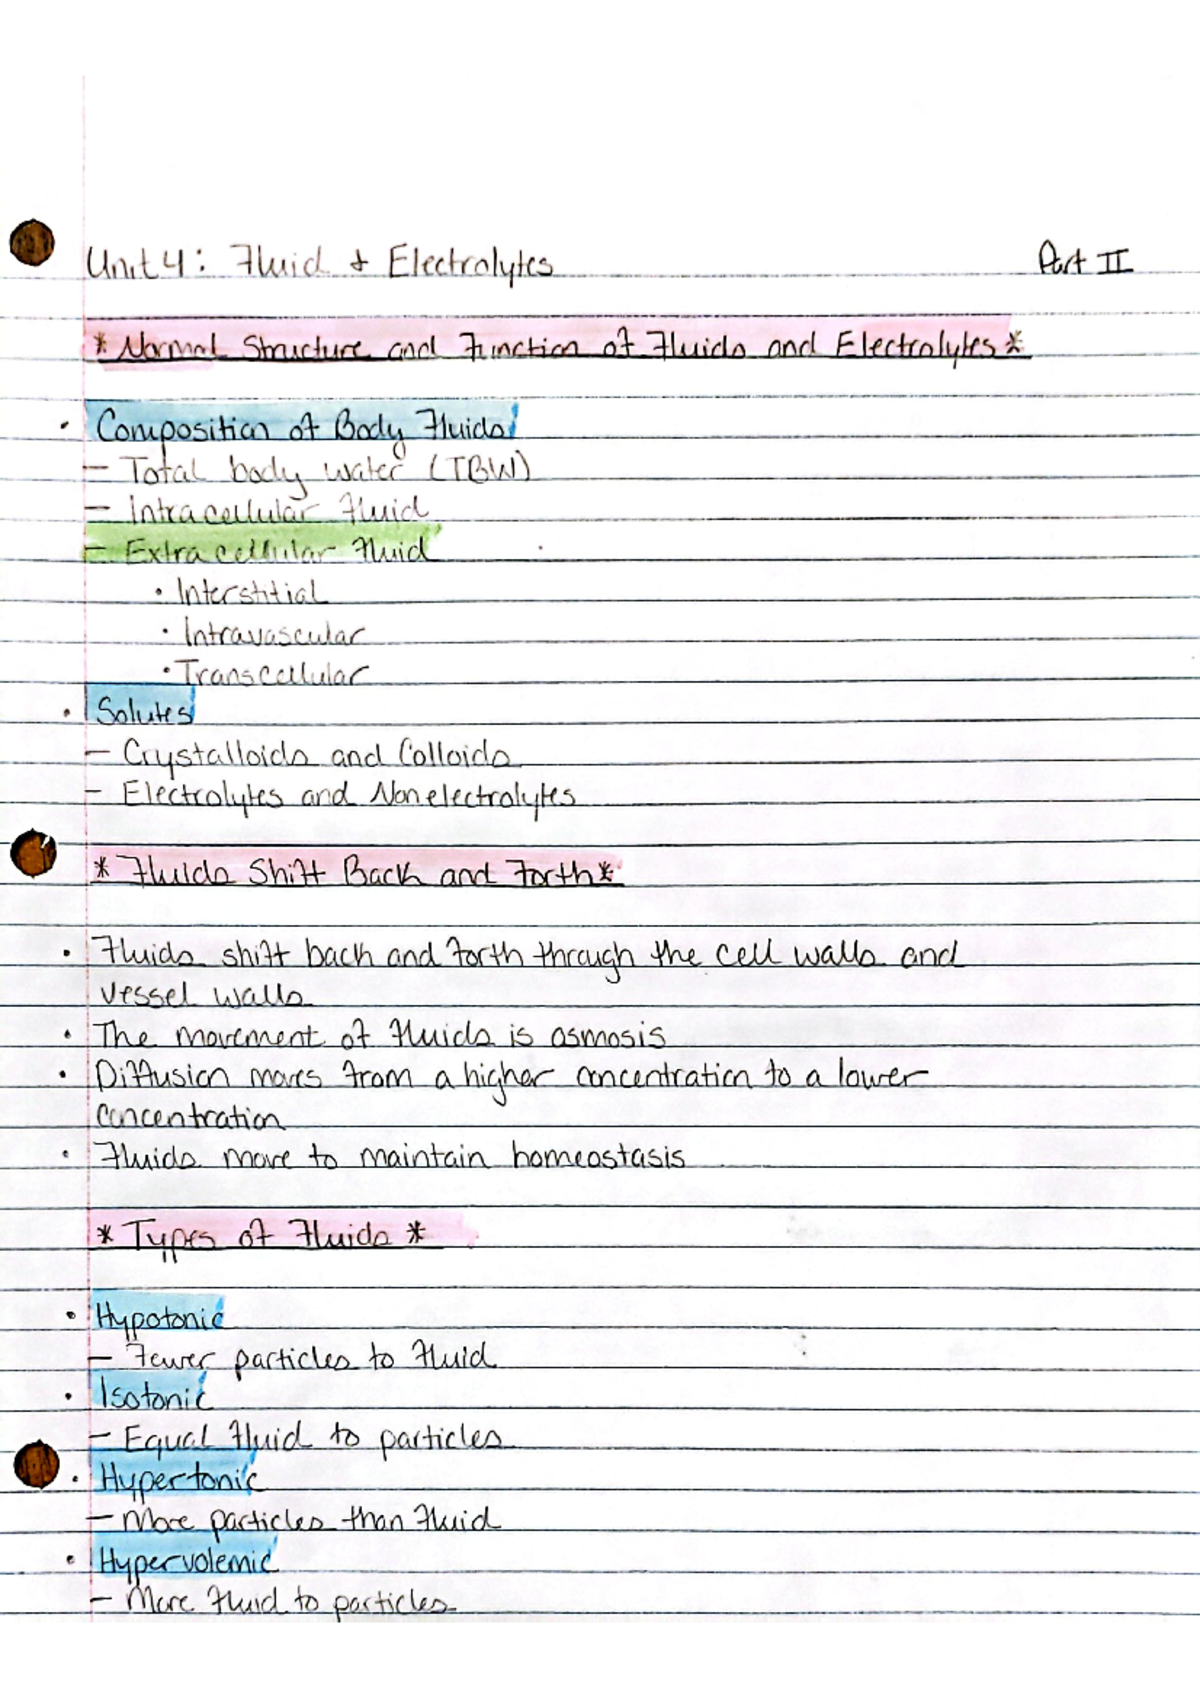 Unit 4: Fluid & Electrolytes Part II
*Normal Structure and Function of Fluids and Electrolytes*
• Composition of Body Fluids
— Total body water (TBW)
— Intracellular Fluid
— Extracellular Fluid
• Interstitial
• Intravascular
• Transcellular
• Solutes
— Crystalloids and Colloids
— Electrolytes and Nonelectrolytes
* Fluids Shift Back and Forth*
• Fluids shift back and forth through the cell walls and
vessel walls
• The movement of fluids is osmosis
• Diffusion moves from a higher concentration to a lower
concentration
• Fluids move to maintain homeostasis
* Types of Fluids *
• Hypotonic
— Fewer particles to fluid
• Isotonic
— Equal fluid to particles
• Hypertonic
— More particles than fluid
• Hypervolemic
— More fluid to particles